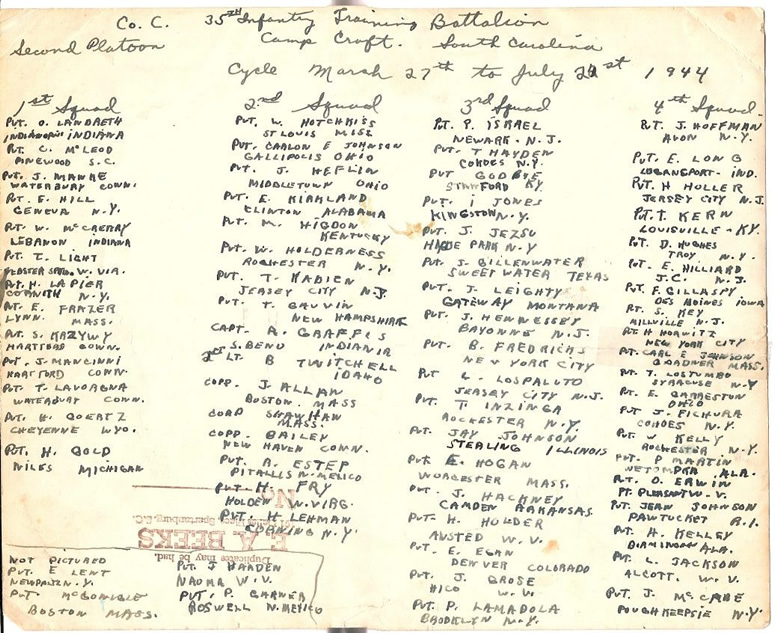 Co. C. 35TH Infantry Training Battalion
Second Platoon Camp Croft. South Carolina
Cycle March 27th to July 2 st 1944
1st Squad
Pvt. O. LANDRETH
INDIANAPOLIS INDIANA
Pvt. C. McLEOD
PINEWOOD S.C.
Pvt. J. MANKE
WATERBURY CONN.
Pvt. E. HILL
GENEVA N.Y.
Pvt. W. McCRERRY
LEBANON INDIANA
Pvt. T. LIGHT
W. VIR.
Pvt. H. LAPIER
CORNITH N.Y.
Pvt. E. FRAZER
LYNN. MASS.
Pvt. S. KAZYWY
HARTFORD CONN.
Pvt. J. MANCINNI
HARTFORD CONN.
Pvt. T. LAVORGNA
WATERBURY CONN.
Pvt. H. GOERTZ
CHEYENNE WYO.
Pvt. H. GOLD
NILES MICHIGAN
NOT PICTURED
Pvt. E LENT
NEWPALTZ N.Y.
Pvt
BOSTON MASS.
2nd Squad
Pvt. W. HOTCHKISS
ST LOUIS MISS
Pvt. CARLON E JOHNSON
GALLIPOLIS OHIO
Pvt. J. HEFLIN
MIDDLETOWN OHIO
Pvt. E. KIRKLAND
CLINTON ALABAMA
Pvt. M. HIGDON
KENTUCKY
Pvt. W. HOLDERNESS
ROCHESTER N.Y.
Pvt. T. KADIEN
JERSEY CITY N.J.
Pvt. T. GAUVIN
NEW HAMPSHIRE
CAPT. R. GRAFFIS
S. BEND INDIANIA
LT. B TWITCHELL
IDAHO
CORP. J. ALLAN
BOSTON. MASS
CORP SHAWHAN
MASS.
CORP. BAILEY
NEW HAVEN CONN.
Pvt. R. ESTEP
PITALLIS N. MEXICO
Pvt. H. FRY
HOLDEN W. VIRG.
Pvt. H. LEHMAN
CORNING N.Y.
E A BEEKS
Duplicates may be had.
Spartanburg, S.C.
Pvt. J HARDEN
NAOMA W.V.
Pvt. P GARNER
ROSWELL N. MEXICO
3rd Squad
Pvt. P. ISRAEL
NEWARK. N.J.
Pvt. T HAYDEN
COHOES N.Y.
Pvt GODBYE
STANFORD KY.
Pvt. I JONES
KINGSTON N.Y.
Pvt. J. JEZSU
HYDE PARK N.Y
Pvt. J. GILLENWATER
SWEET WATER TEXAS
Pvt. J. LEIGHTY
GATEWAY MONTANA
Pvt. J. HENNESSEY
BAYONNE N.J.
Pvt. B. FREDRICKS
NEW YORK CITY
Pvt L. LOSPALUTO
JERSEY CITY N.J.
Pvt. T. INZINGA
ROCHESTER N.Y.
Pvt. JAY JOHNSON
STERLING ILLINOIS
Pvt. E. HOGAN
WORCESTER MASS.
Pvt. J. HACKNEY
CAMDEN ARKANSAS
Pvt. H. HOLDER
AUSTED W.V.
Pvt. E. EGAN
DENVER COLORADO
Pvt. J. GROSE
HICO W.V.
Pvt. P. LAMADOLA
BROOKLYN N.Y.
4th Squad
Pvt. J. HOFFMAN
AVON N.Y.
Pvt. E. LONG
LOGANSPORT - IND.
Pvt. H HOLLER
JERSEY CITY N.J.
Pvt. T. KERN
LOUISVILLE - KY.
Pvt. D. HUGHES
TROY N.Y.
Pvt. E. HILLIARD
J.C. N.J.
Pvt. F. GILLASPY
DES MOINES IOWA
Pvt. S. KEY
MILLVILLE N.J.
Pvt. H HORWITZ
NEW YORK CITY
Pvt. CARL E JOHNSON
GARDNER MASS.
Pvt. T. LOSTUMBO
SYRACUSE N.Y
Pvt. E GARRESTON
OHIO
Pvt J. FICHURA
COHOES N.Y.
Pvt. W KELLY
ROCHESTER N.Y.
Pvt. P MARTIN
ALA.
Pvt. O. ERWIN
PT. PLEASANT W.V.
Pvt. JEAN JOHNSON
PAWTUCKET R.I.
Pvt. H. KELLEY
ALA.
Pvt. L. JACKSON
ALCOTT. W.V.
Pvt. J. McCABE
POUGHKEEPSIE N.Y.